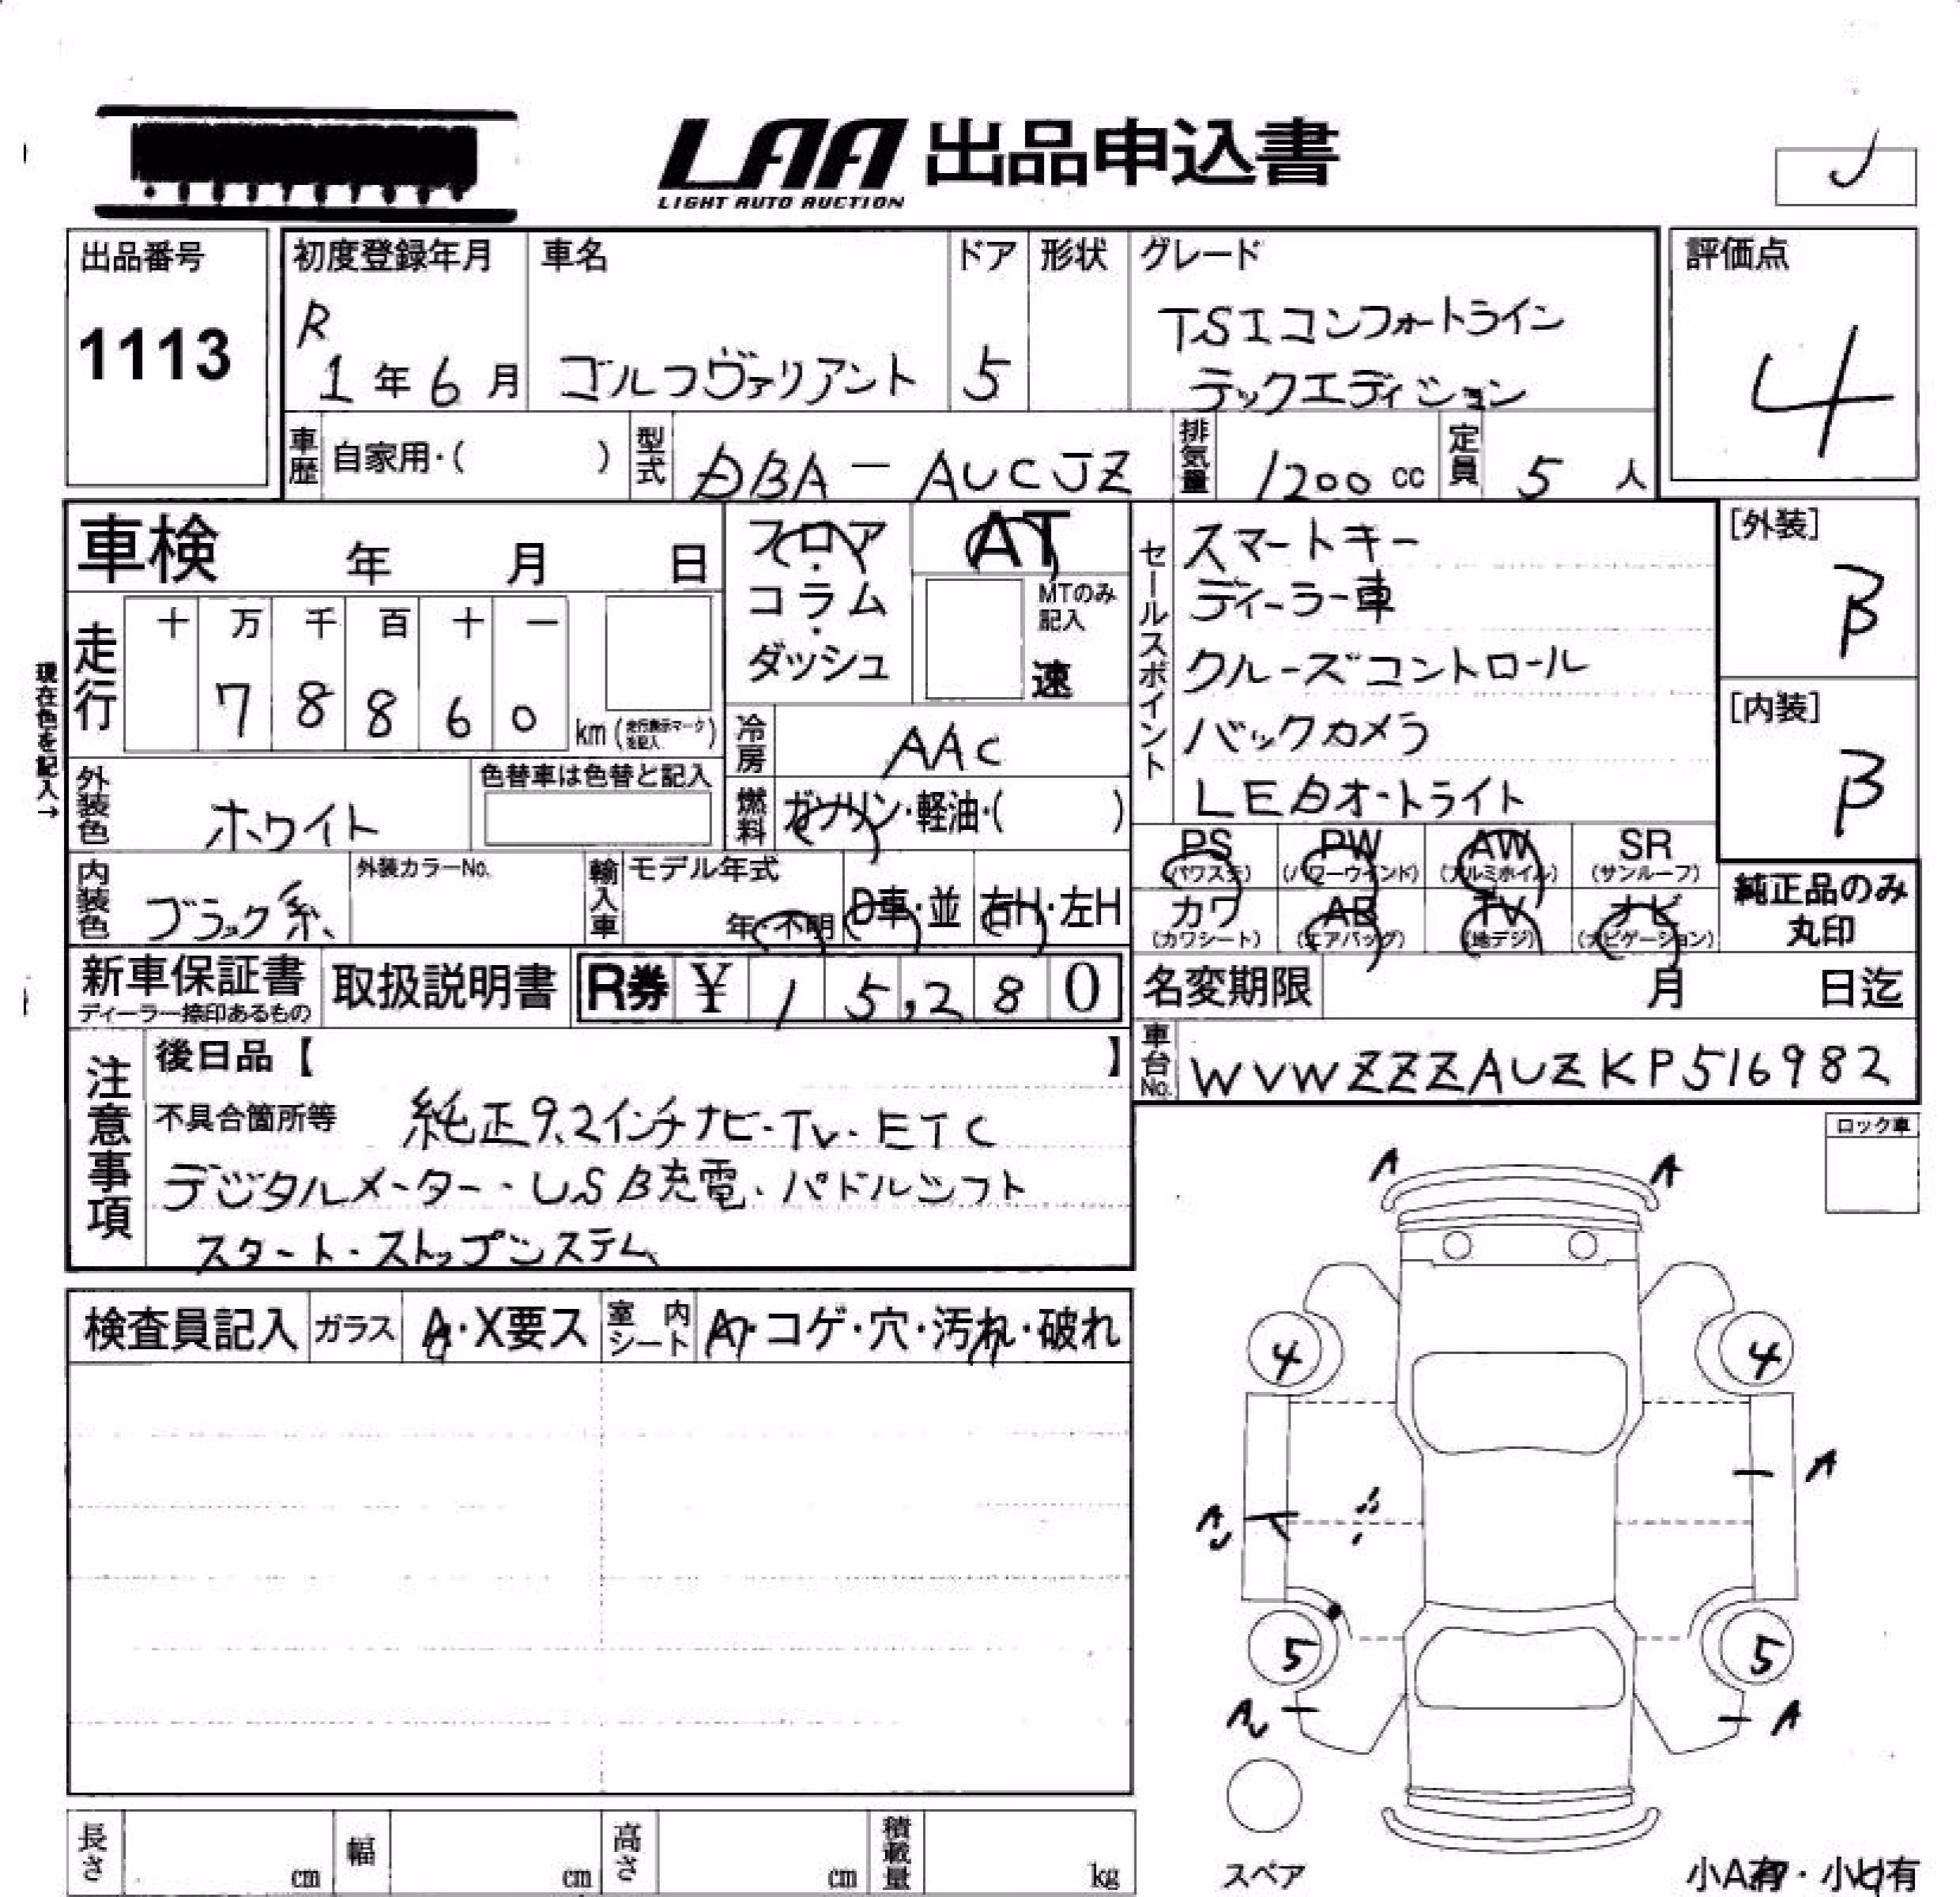 LAA 出品申込書
LIGHT AUTO AUCTION
出品番号
1113
初度登録年月
R
1年6月
車名
ゴルフヴァリアント
ドア
5
形状
グレード
TSIコンフォートライン
テックエディション
評価点
4
車歴 自家用・( )
型式 DBA－AUCJZ
排気量 1200 cc
定員 5 人
車検 年 月 日
フロア・コラム・ダッシュ
AT
MTのみ記入
速
セールスポイント
スマートキー
ディーラー車
クルーズコントロール
バックカメラ
LEDオートライト
[外装]
B
[内装]
B
現在色を記入→
走行
十 万 千 百 十 一
7 8 8 6 0 km (走行表示マークを記入)
冷房 AAC
外装色 ホワイト
色替車は色替と記入
燃料 ガソリン・軽油・( )
PS (パワステ) PW (パワーウインド) AW (アルミホイル) SR (サンルーフ)
カワ (カワシート) AB (エアバッグ) TV (地デジ) ナビ (ナビゲーション)
純正品のみ丸印
内装色 ブラック系
外装カラーNo.
輸入車 モデル年式 年・不明 D車・並 右H・左H
新車保証書
ディーラー捺印あるもの
取扱説明書
R券 ¥ 1 5,2 8 0
名変期限 月 日迄
車台No. WVWZZZAUZKP516982
注意事項
後日品【 】
不具合箇所等 純正9.2インチナビ・TV・ETC
デジタルメーター・USB充電・パドルシフト
スタート・ストップシステム
ロック車
A A
検査員記入 ガラス A・X要ス 室内シート A・コゲ・穴・汚れ・破れ
4 4
A
5 5
A
スペア
小A有・小U有
長さ cm 幅 cm 高さ cm 積載量 kg